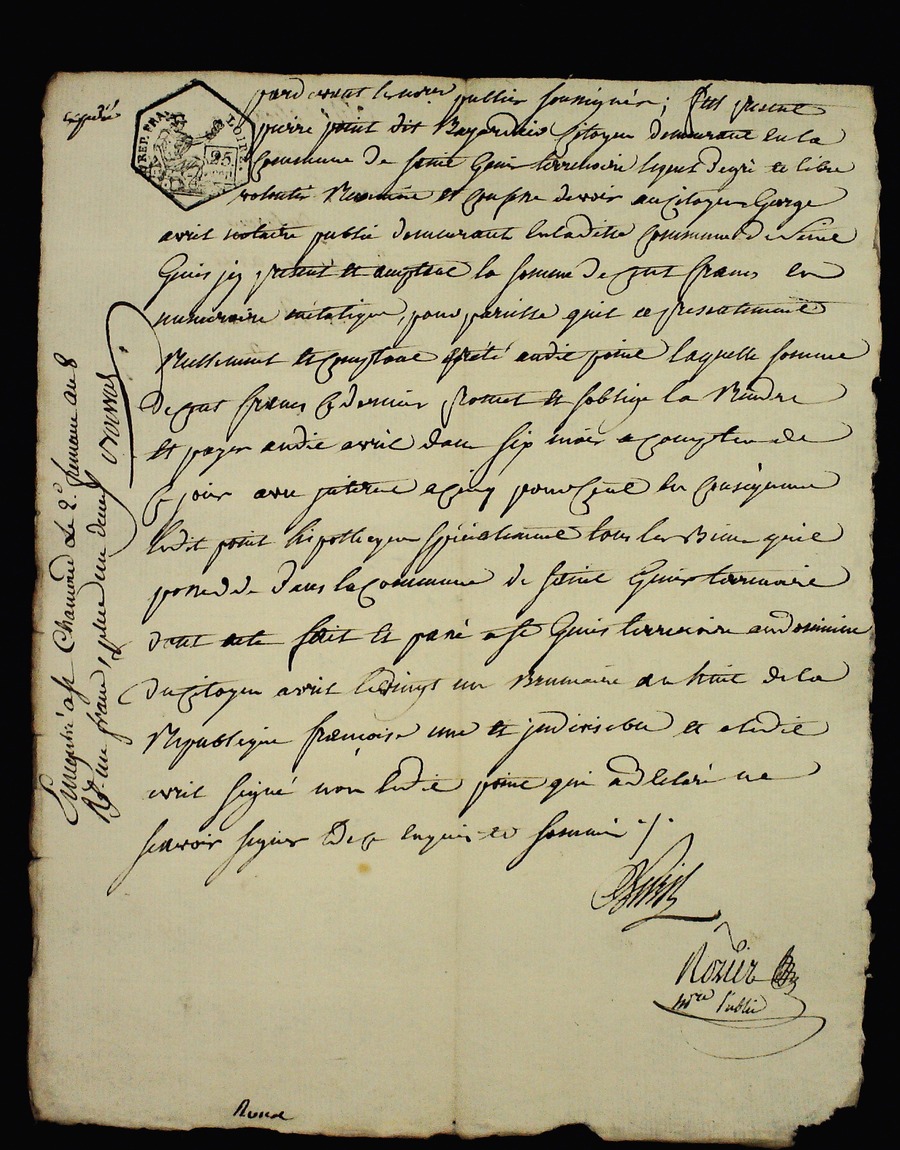 expedié
REP. FRA.
25
pardevant le notre publics soussignés ; fut present
pierre point dit Bayardin Citoyen demeurant en la
Commune de saint Genis terrenoire lequel de gré et libre
volonté Reconnu et Confesse devoir au Citoyen George
avril notaire public demeurant en ladite Commune de Saint
Genis icy present et acceptant la somme de cent francs en
numeraire metalique, pour pareille qu'il a presentement
Reellement et comptant preté audit point laquelle somme
de cent francs Ce dernier promet et s'oblige la Rendre
et payer audit avril dans six mois a Compter de
Ce jour avec interet a cinq pour Cent en Conséquence
ledit point hipotheque spécialement tous les Biens qu'il
possede dans la Commune de saint Genis terrenoire
dont acte fait et passé a St Genis terrenoire au domicile
du Citoyen avril le vingt un Brumaire an huit de la
Republique françoise une et indivisible et a ledit
avril signé non ledit point qui a declaré ne
scavoir signer De ce enquis et sommé ./.
Avril
Rozier
nre Public
Enregistré a St Chamond le 2e frimaire an 8
Rd. un franc, plus un decime